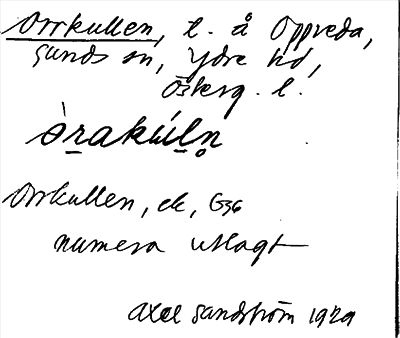 Orrkullen, t. å Oppreda,
Sunds sn, Ydre hd,
Österg. l.
òrakúln̥
Orrkullen, ek, G36
numera utlagt
Axel Sandström 1929